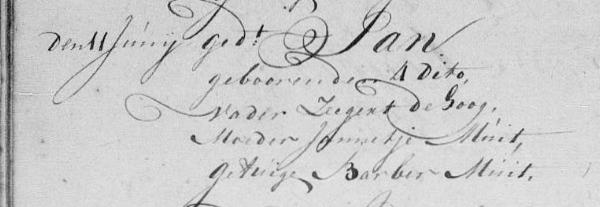 den 11 Junij ged.t Jan
gebooren den 4 dito,
vader Zeegert de Goog,
Moeder Jannetje Muit,
getuige Barber Muit.